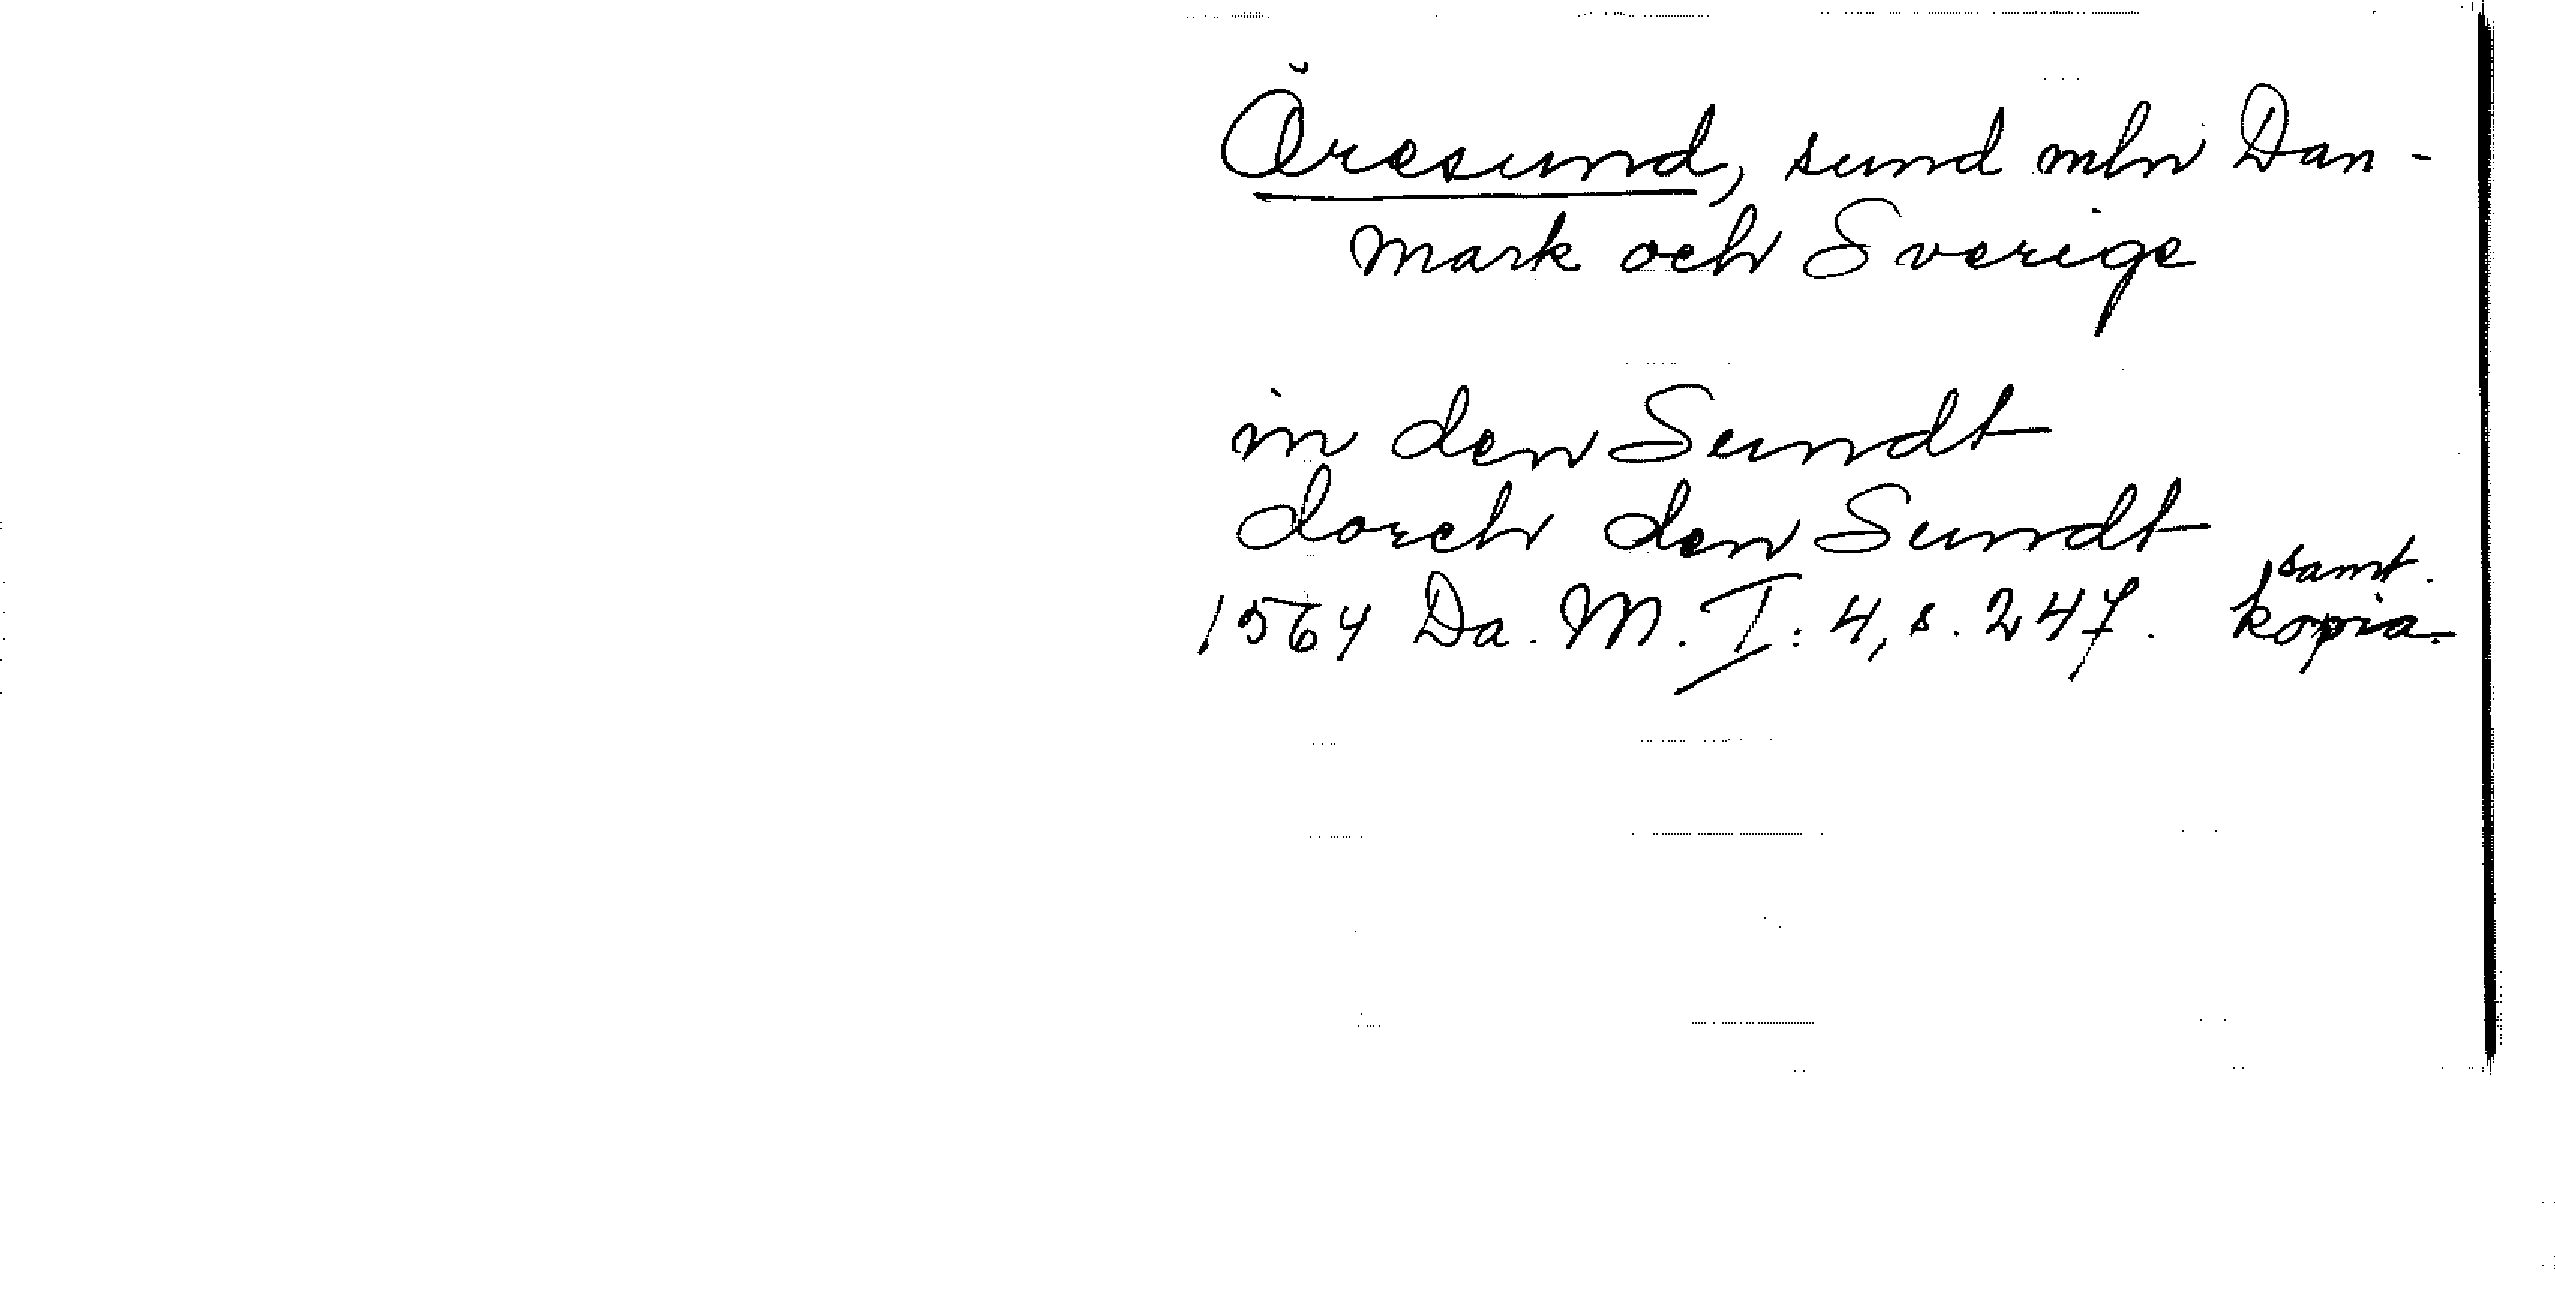 Öresund, sund mln Dan-
mark och Sverige
in den Sundt
dorch den Sundt
samt.
1564 Da. M. I: 4, s. 247. kopia.